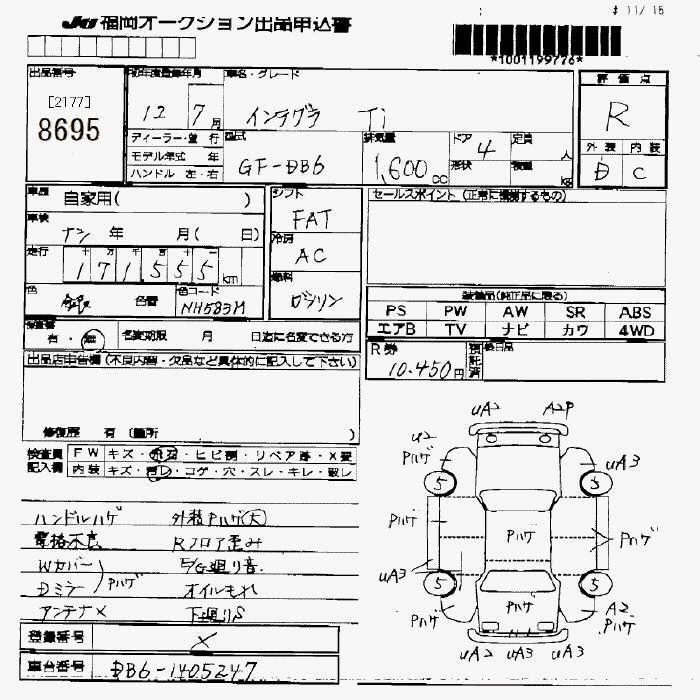 # 11/ 16
JU 福岡オークション出品申込書
*1001199776*
出品番号
[2177]
8695
初年度登録年月
12 7月
車名・グレード
インテグラ Ti
評価点
R
外装 内装
D C
ディーラー・並行
モデル年式 年
ハンドル 左・右
型式
GF-DB6
排気量
1,600cc
ドア 4
形状
定員 人
積載 kg
車歴
自家用( )
シフト
FAT
セールスポイント (正常に機能するもの)
車検
ナシ 年 月( 日)
冷房
AC
走行
十万千百十
171,555km
燃料
ガソリン
色
銀
色替
色コード
NH583M
装備品(純正品に限る)
PS PW AW SR ABS
エアB TV ナビ カワ 4WD
保証書
有・無
名変期限 月 日迄に名変できる方
R券
10.450円
預託済
後日品
出品店申告欄 (不良内容・欠品など具体的に記入して下さい)
修復歴 有 (箇所 )
検査員記入欄
FW キズ・飛石・ヒビ割・リペア跡・X要
内装 キズ・汚レ・コゲ・穴・スレ・キレ・破レ
ハンドルハゲ 外装Pハゲ(大)
電格不良 Rフロア歪み
Wカバー E/G廻り音
Dミラー Pハゲ オイルもれ
アンテナX 下廻りS
登録番号 X
車台番号 DB6-1405247
uA2 A2P
U2
Pハゲ
uA3
5 5
Pハゲ Pハゲ Pハゲ
uA3
5 5
Pハゲ Pハゲ A2.Pハゲ
uA2 uA3 uA3